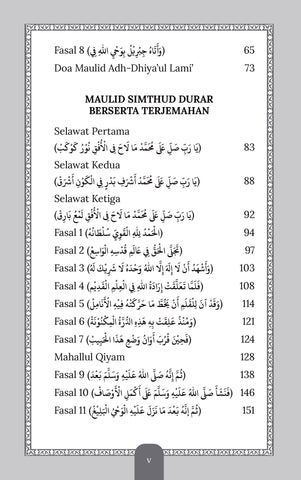 Fasal 8 (وَأَتَاهُ جِبْرِيْلُ بِوَحْيِ اللهِ فِي) 65
Doa Maulid Adh-Dhiya'ul Lami' 73
MAULID SIMTHUD DURAR
BERSERTA TERJEMAHAN
Selawat Pertama
(يَا رَبِّ صَلِّ عَلَى مُحَمَّدْ مَا لَاحَ فِي الْأُفْقِ نُوْرُ كَوْكَبْ) 83
Selawat Kedua
(يَا رَبِّ صَلِّ عَلَى مُحَمَّدْ أَشْرَفِ بَدْرٍ فِي الْكَوْنِ أَشْرَقْ) 88
Selawat Ketiga
(يَا رَبِّ صَلِّ عَلَى مُحَمَّدْ مَا لَاحَ فِي الْأُفْقِ لَمْعُ بَارِقْ) 92
Fasal 1 (الْحَمْدُ لِلهِ الْقَوِيِّ سُلْطَانُهُ) 94
Fasal 2 (تَجَلَّى الْحَقُّ فِي عَالَمِ قُدْسِهِ الْوَاسِعِ) 97
Fasal 3 (وَأَشْهَدُ أَنْ لَا إِلَهَ إِلَّا اللهُ وَحْدَهُ لَا شَرِيْكَ لَهُ) 103
Fasal 4 (فَلَمَّا تَعَلَّقَتْ إِرَادَةُ اللهِ فِي الْعِلْمِ الْقَدِيْمِ) 108
Fasal 5 (وَقَدْ آنَ لِلْقَلَمِ أَنْ يَخُطَّ مَا حَرَّكَتْهُ فِيْهِ الْأَنَامِلُ) 114
Fasal 6 (وَمُنْذُ عَلِقَتْ بِهِ هَذِهِ الدُّرَّةُ الْمَكْنُوْنَةُ) 121
Fasal 7 (فَحِيْنَ قَرُبَ أَوَانُ وَضْعِ هَذَا الْحَبِيْبِ) 124
Mahallul Qiyam 128
Fasal 9 (ثُمَّ إِنَّهُ صَلَّى اللهُ عَلَيْهِ وَسَلَّمَ بَعْدَ) 138
Fasal 10 (فَنَشَأَ صَلَّى اللهُ عَلَيْهِ وَسَلَّمَ عَلَى أَكْمَلِ الْأَوْصَافْ) 146
Fasal 11 (ثُمَّ إِنَّهُ بَعْدَ مَا نَزَلَ عَلَيْهِ الْوَحْيُ الْبَلِيْغُ) 151
v